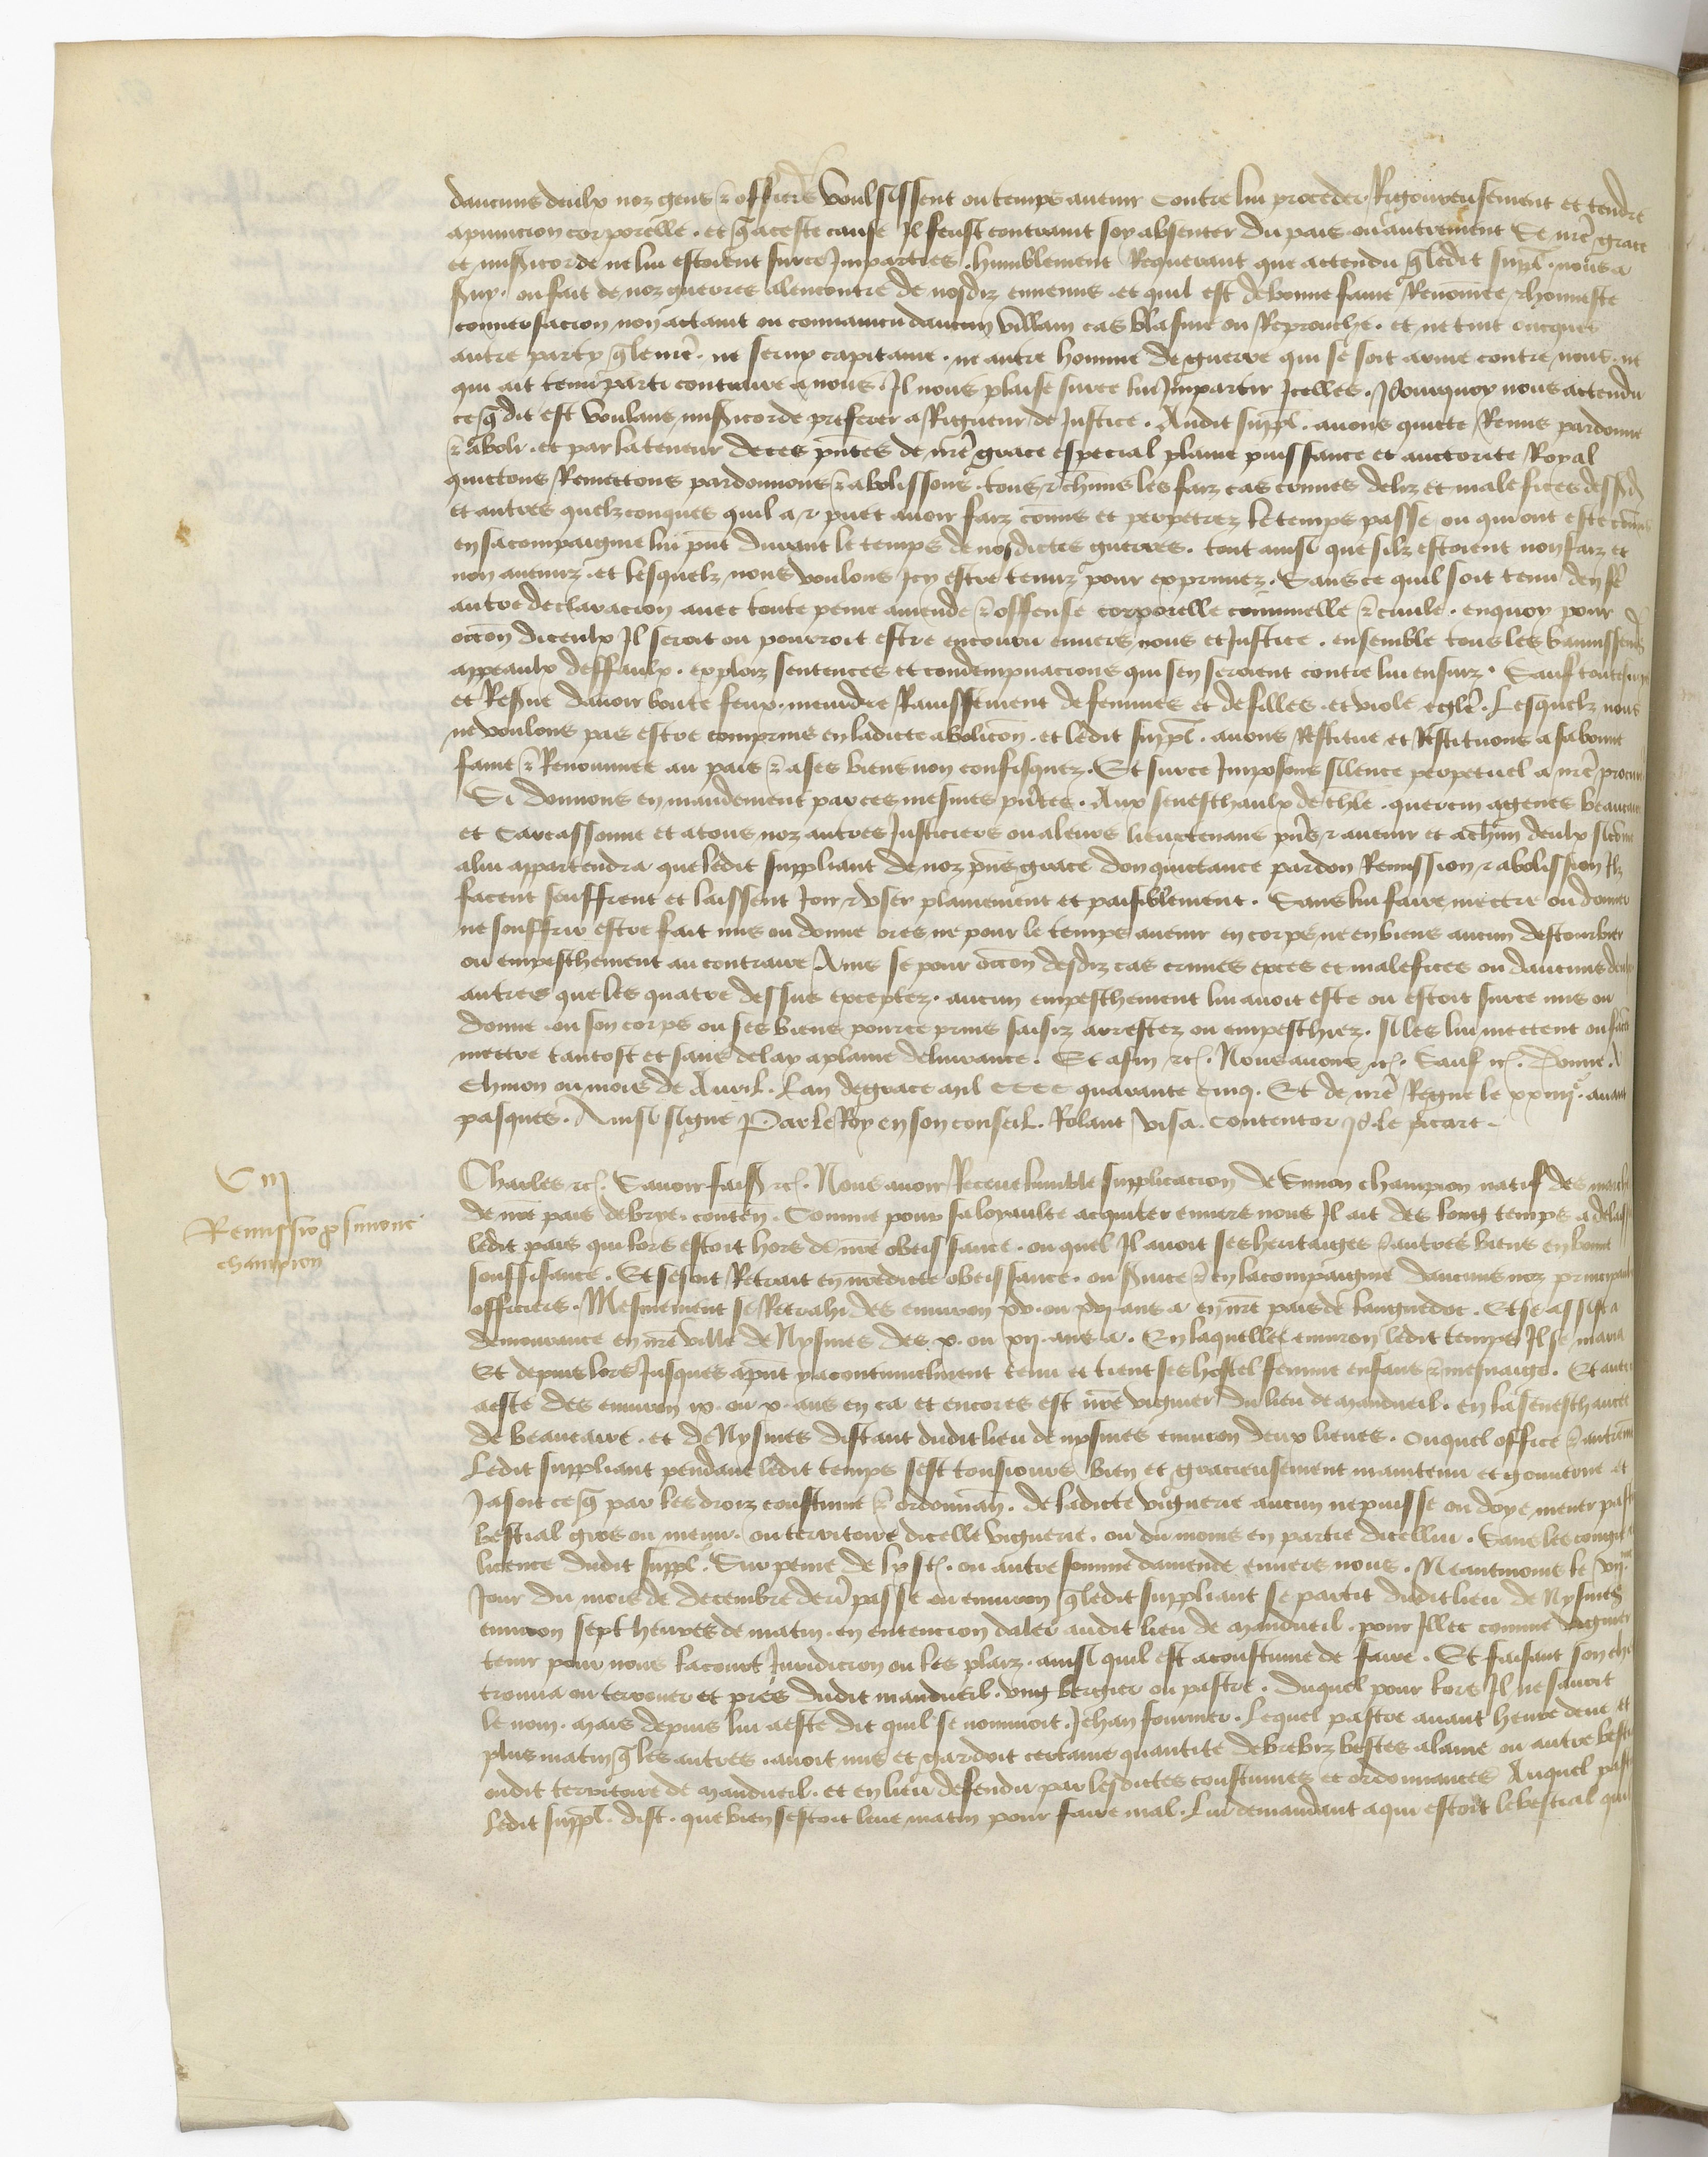 daucuns deulx noz gens & officiers voulsissent ou temps auenir contre lui proceder Rigoureusement et tendre
apunicion corporelle . et q̃ aceste cause Il feust contraint soy absenter du pais ou autrement Se nr̃e grace
et misẽicorde ne lui estoient surce Imparties . humblement Requerant que attendu q̃ ledit suppl̃ . nous a
seruy . ou fait de noz guerres alencontre de nosdiz ennemis . et quil est de bonne fame Renõmee & honneste
conuersacion non actaint ou conuaincu daucun villain cas blasme ou Reprouche . et ne tint oncques
autre party q̃ le nr̃e . ne seruy capitaine . ne autre homme de guerre qui se soit arme contre nous . ne
qui ait tenu parti contraire a nous . Il nous plaise surce lui Impartir Icelles . Pourquoy nous attendu
ce q̃ dit est voulans misẽicorde preferer a Rigueur de Justice . Audit suppl̃ . auons quicte Remis pardonne
& aboli . et par la teneur de ces p̃ntes de nr̃e grace especial plaine puissance et auctorite Royal
quictons Remettons pardonnons & abolissons . tous & ch̃uns les faiz cas crimes deliz et malefices dessusd̃
et autres quelzconques quil a & puet auoir faiz cõmis et perpetrez le temps passe ou qui ont este cõmis
en sa compaignie lui p̃nt durant le temps de nosdictes guerres . tout ainsi que silz estoient non faiz et
non auenuz . et lesquelz nous voulons Icy estre tenuz pour exprimez . Sans ce quil soit tenu den fẽ
autre declaracion auec toute peine amende & offense corporelle criminelle & ciuile . enquoy pour
occõn diceulx Il seroit ou pourroit estre encouru enuers nous et Justice . ensemble tous les bannissemẽs
appeaulx deffaulx . exploiz sentences et condempnacions qui sen seroient contre lui ensuiz . Sauf toutesuoyes
et Reserue dauoir boute feux . meurdre Rauissement de femmes et de filles . et viole eglẽ . Lesquelz nous
ne voulons pas estre comprins en ladicte abolicõn . et ledit suppl̃ . auons Restitue et Restituons a sa bonne
fame & Renommee au pais & a ses biens non confisquez . Et surce Imposons sillence perpetuel a nr̃e procur̃
Si donnons en mandement par ces mesmes p̃ntes . Aux seneschaulx de th̃le . quercin agenes beaucaire
et Carcassonne et a tous noz autres Justiciers ou a leurs lieuxtenans p̃ns & auenir et a ch̃un deulx sicõme
a lui appartendra que ledit suppliant de noz p̃ns grace don quictance pardon Remission & abolission Ilz
facent seuffrent et laissent Joir & vser plainement et paisiblement . Sans lui faire mectre ou donner
ne souffrir estre fait mis ou donne ores ne pour le temps auenir en corps ne en biens aucun destourbier
ou empeschement au contraire Ains se pour occõn desdiz cas crimes exces et malefices ou daucuns deulx
autres que les quatre dessus exceptez . aucun empeschement lui auoit este ou estoit surce mis ou
donne . ou son corps ou ses biens pource prins saisiz arrestez ou empeschiez . Ilz les lui mectent ou facent
mettre tantost et sans delay a plaine deliurance . Et afin &c̃ . Nous auons &c̃ . Sauf &c̃ . Donne A
Chinon ou mois de Auril . Lan de grace mil cccc quarante cinq . Et de nr̃e Regne le xxiiij.e auant
pasques . Ainsi signe Par le Roy en son conseil . Rolant Visa . Contentor P . le picart .
Viij
Remissio p̱ simone
champion
Charles &c̃ . Sauoir fais̃ &c̃ . Nous auoir Receue lumble supplicacion de Simon champion natif des march
de nr̃e pais de brye . conteñ . Comme pour sa loyaulte acquiter enuers nous Il ait des long temps a delaisse
ledit pais qui lors estoit hors de nr̃e obeissance . ou quel Il auoit ses heritaiges & autres biens en bonne
souffisance . Et se soit Retrait en nr̃edicte obeissance . ou seruice & en la compaignie daucuns noz principaulx
officiers . Mesmement se Retrahi des enuiron xv . ou xvj ans a en nr̃e pais de languedoc . Et se assist a
demourance en nr̃e ville de Nysmes des x . ou xij . ans a . En laquelle enuiron ledit temps Il se maria
Et depuis lors Jusques a p̃nt y a continuelment tenu et tient ses hostel femme enfans & mesnaige . Et aussi
a este des enuiron ix . ou x . ans en ca et encores est nr̃e viguier du lieu de mandueil . en la seneschaucee
de beaucaire . et de Nysmes distant dudit lieu de nysmes enuiron deux lieues . ouquel office & autrem̃t
Ledit suppliant pendant ledit temps sest tousiours bien et gracieusement maintenu et gouuerne et
Jasoit ce q̃ par les droiz coustume & ordonnan̄ . de ladicte viguerie aucun ne puisse ou doye mener paistre
bestial gros ou menu . ou territoire dicelle viguerie . ou du moins en partie dicellui . Sans les congie &
licence dudit suppl̃ . Sur peine de lx s̃ t̃ . ou autre somme damende enuers nous . Neantmoins le viij.me
Jour du mois de decembre deñr passe ou enuiron q̃ ledit suppliant se partit dudit lieu de Nysmes
enuiron sept heures de matin . en entencion daler audit lieu de mandueil . pour Illec comme viguier
tenir pour nous la court Juridicion ou les plaiz . ainsi quil est acoustume de faire . Et faisant son che
trouua ou terrouer et pres dudit mandueil . vng bergier ou pastre . duquel pour lors Il ne sauoit
le nom . mais depuis lui a este dit quil se nommoit . Jehan fournier . Lequel pastre auant heure deue et
plus matin q̃ les autres . auoit mis et gardoit certaine quantite de brebiz bestes a laine ou autre besti
oudit territoire de mandueil . et en lieu defendu par lesdictes coustumes et ordonnances Auquel past
Ledit suppl̃ . dist . que bien sestoit leue matin pour faire mal . Lui demandant a qui estoit le bestial quil